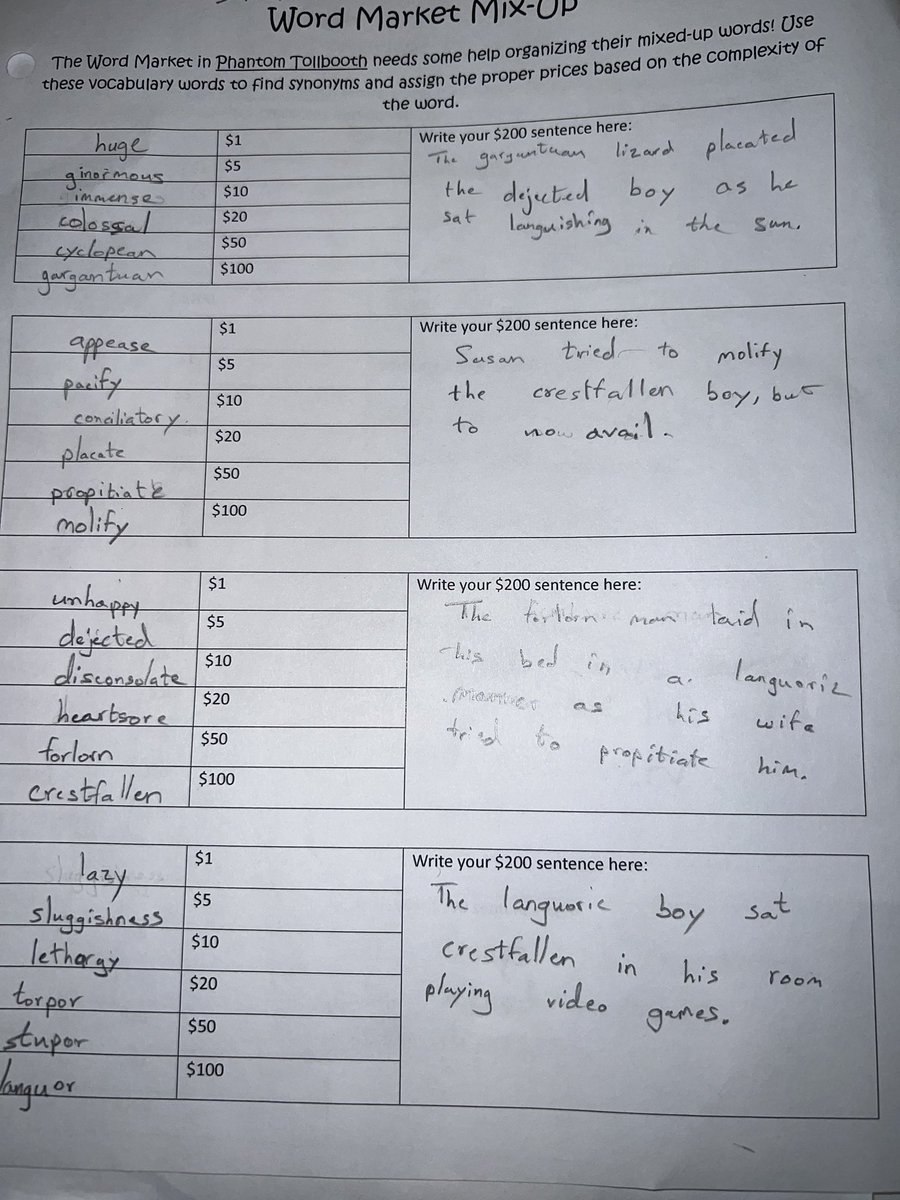 Word Market Mix-Up
The Word Market in Phantom Tollbooth needs some help organizing their mixed-up words! Use
these vocabulary words to find synonyms and assign the proper prices based on the complexity of
the word.
huge $1
ginormous $5
immense $10
colossal $20
cyclopean $50
gargantuan $100
Write your $200 sentence here:
The garguntuan lizard placated
the dejected boy as he
sat languishing in the sun.
appease $1
pacify $5
conciliatory. $10
placate $20
propitiate $50
molify $100
Write your $200 sentence here:
Susan tried to molify
the crestfallen boy, but
to now avail.
unhappy $1
dejected $5
disconsolate $10
heartsore $20
forlorn $50
crestfallen $100
Write your $200 sentence here:
The forlorn man laid in
his bed in a languoric
manner as his wife
tried to propitiate him.
lazy $1
sluggishness $5
lethargy $10
torpor $20
stupor $50
languor $100
Write your $200 sentence here:
The languoric boy sat
crestfallen in his room
playing video games.